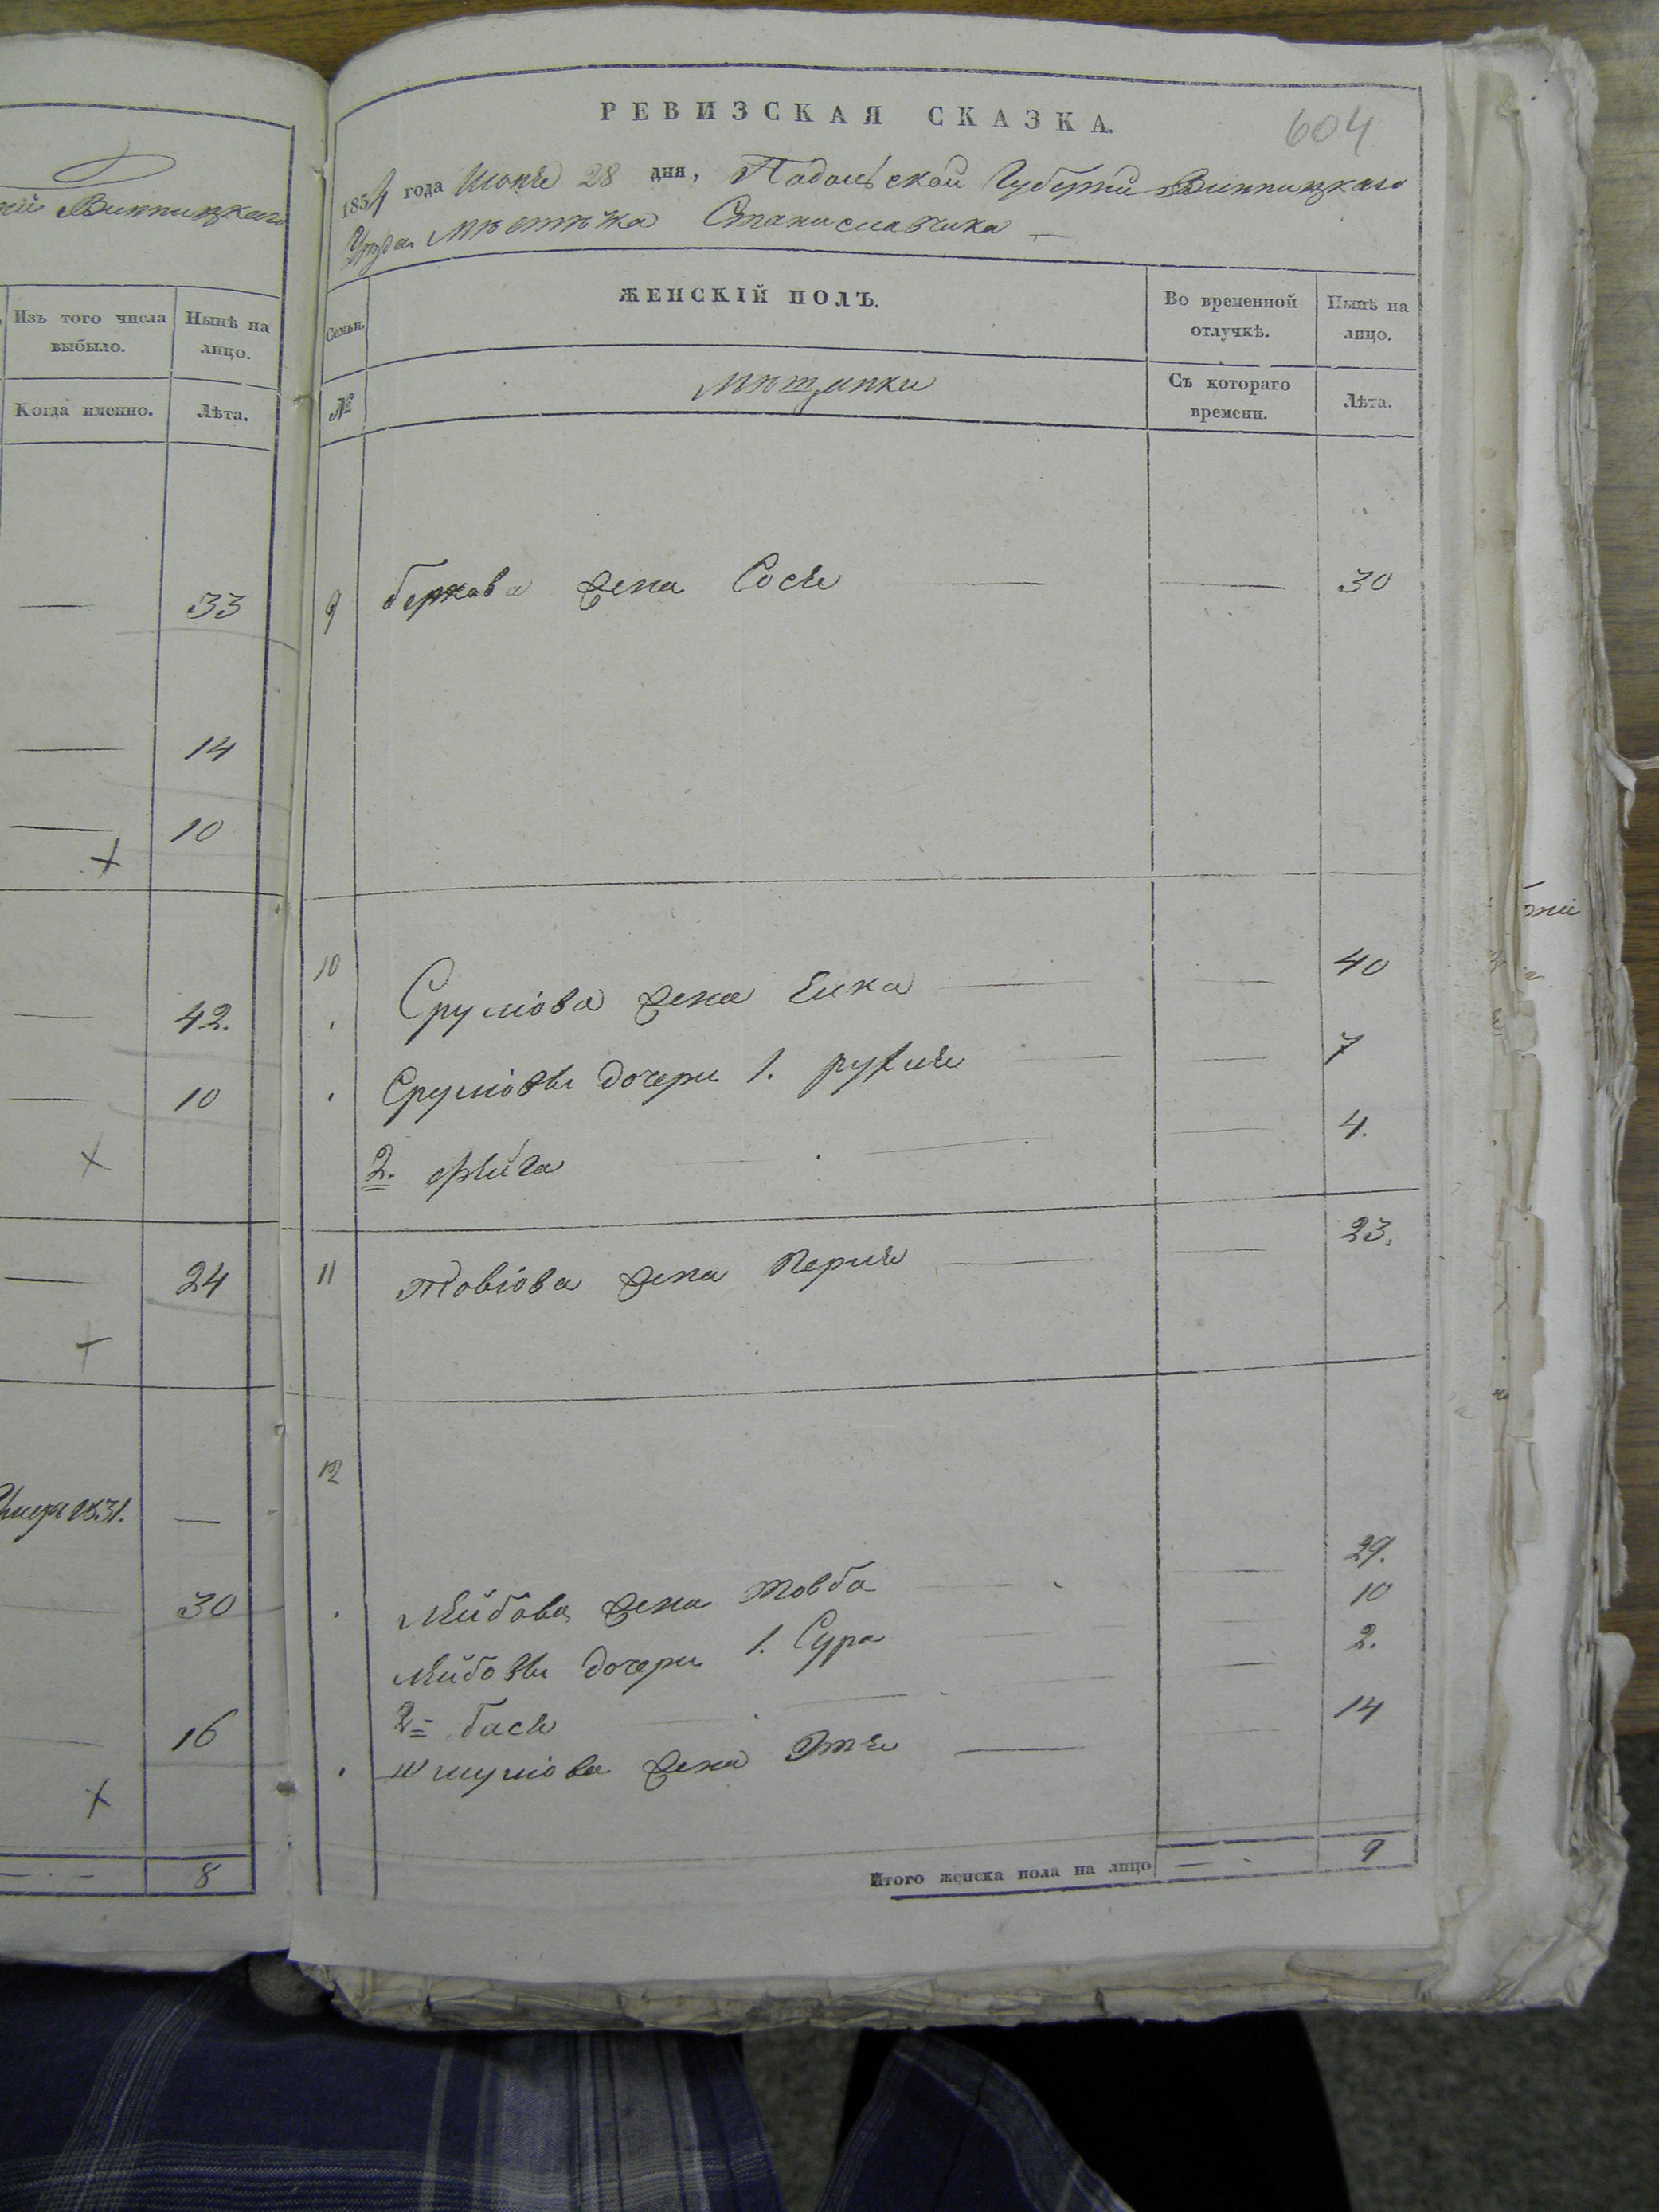 Винницкаго
Изъ того числа выбыло.
Нынѣ на лицо.
Когда именно.
Лѣта.
— 33
— 14
— 10
— 42.
— 10
— 24
1831. —
— 30
— 16
— 8
РЕВИЗСКАЯ СКАЗКА.
604
1834 года Июня 28 дня, Подольской Губерніи Винницкаго
Уѣзда Мѣстѣчка Станиславчика —
Семьи.
ЖЕНСКІЙ ПОЛЪ.
Во временной отлучкѣ.
Нынѣ на лицо.
№
Мѣщанки
Съ котораго времени.
Лѣта.
9 Беркова жена Сося — — 30
10
Срулiова жена Елка — — 40
Срулiовы дочери 1. Рухля — — 7
2. Фейга — — 4.
11 Товiова жена Перля — — 23.
12
Лейбова жена Товба — — 29.
Лейбовы дочери 1. Сура — — 10
2= Бася — — 2.
Шмулiова жена Этя — — 14
Итого женска пола на лицо — 9